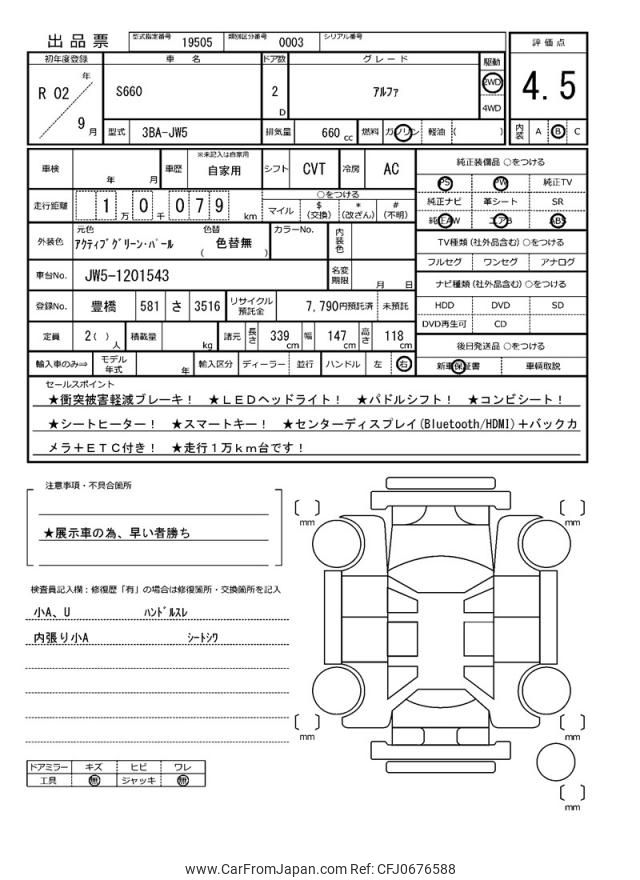 出品票 型式指定番号 19505 類別区分番号 0003 シリアル番号
評価点
4.5
内装 A B C
初年度登録 車名 ドア数 グレード 駆動
R 02 年 9 月
S660 2 D アルファ 2WD 4WD
型式 3BA-JW5 排気量 660 cc 燃料 ガソリン 軽油 ( )
車検 年 月 車歴 ※未記入は自家用 自家用 シフト CVT 冷房 AC
走行距離 1 万 0 千 0 7 9 km
○をつける
マイル $ (交換) * (改ざん) # (不明)
外装色 元色 アクティブグリーン・パール 色替 ( 色替無 ) カラーNo. 内装色
車台No. JW5-1201543 名変期限 月 日
登録No. 豊橋 581 さ 3516 リサイクル預託金 7,790円預託済 未預託
定員 2( ) 人 積載量 kg 諸元 長さ 339 cm 幅 147 cm 高さ 118 cm
輸入車のみ⇒ モデル年式 年 輸入区分 ディーラー 並行 ハンドル 左 右
純正装備品 ○をつける
PS PW 純正TV
純正ナビ 革シート SR
純正AW エアB ABS
TV種類 (社外品含む) ○をつける
フルセグ ワンセグ アナログ
ナビ種類 (社外品含む) ○をつける
HDD DVD SD
DVD再生可 CD
後日発送品 ○をつける
新車保証書 車輌取説
セールスポイント
★衝突被害軽減ブレーキ! ★LEDヘッドライト! ★パドルシフト! ★コンビシート!
★シートヒーター! ★スマートキー! ★センターディスプレイ(Bluetooth/HDMI)+バックカ
メラ+ETC付き! ★走行1万km台です!
注意事項・不具合箇所
★展示車の為、早い者勝ち
検査員記入欄:修復歴「有」の場合は修復箇所・交換箇所を記入
小A、U ハンドルスレ
内張り小A シートシワ
mm
mm
mm
mm
mm
ドアミラー キズ ヒビ ワレ
工具 無 ジャッキ 無
www.CarFromJapan.com Ref: CFJ0676588